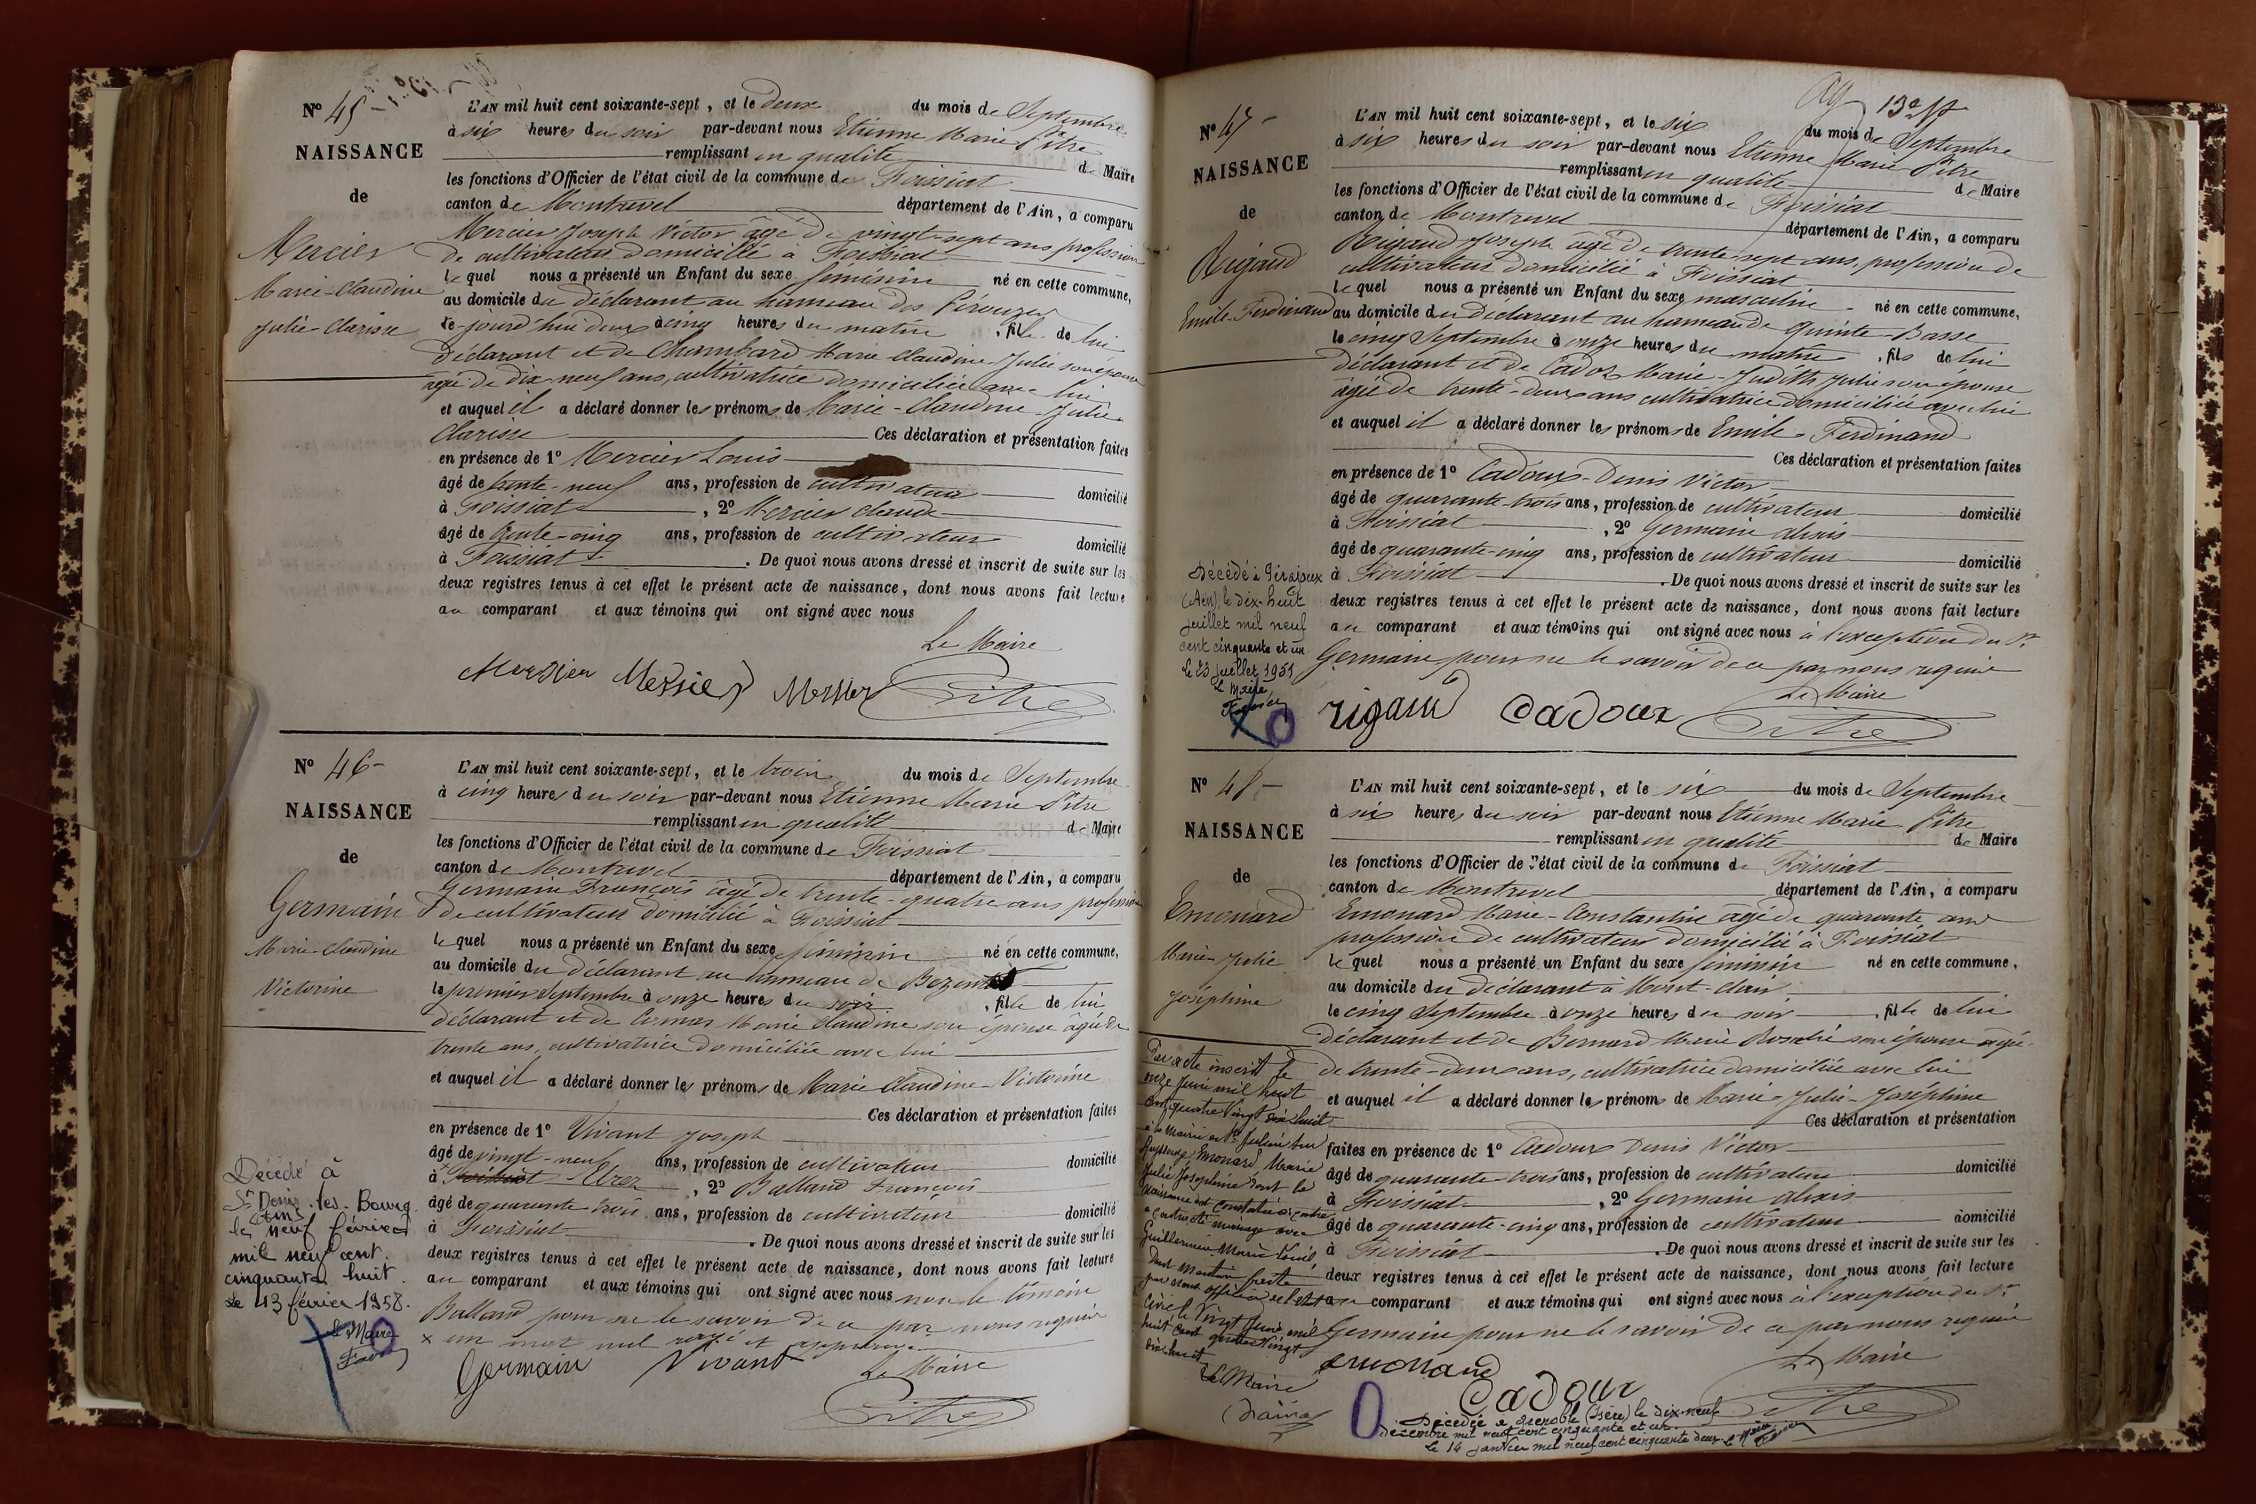 N° 45 -
NAISSANCE
de
Mercier
Marie-Claudine
Julie-Clarisse
L'AN mil huit cent soixante-sept, et le deux du mois de Septembre
à six heures du soir par-devant nous Etienne Marie Pitre
remplissant en qualité de Maire
les fonctions d'Officier de l'état civil de la commune de Foissiat
canton de Montrevel département de l'Ain, a comparu
Mercier Joseph Victor âgé de vingt-sept ans profession
de cultivateur domicilié à Foissiat
lequel nous a présenté un Enfant du sexe féminin né en cette commune,
au domicile du déclarant au hameau des
ce-jourd'hui deux à cinq heures du matin, fille de lui
déclarant et de Chambard Marie Claudine Julie son épouse
âgée de dix-neuf ans, cultivatrice domiciliée avec lui
et auquel il a déclaré donner les prénoms de Marie-Claudine-Julie-
Clarisse Ces déclaration et présentation faites
en présence de 1° Mercier Louis
âgé de trente-neuf ans, profession de cultivateur domicilié
à Foissiat, 2° Mercier Claude
âgé de trente-cinq ans, profession de cultivateur domicilié
à Foissiat. De quoi nous avons dressé et inscrit de suite sur les
deux registres tenus à cet effet le présent acte de naissance, dont nous avons fait lecture
au comparant et aux témoins qui ont signé avec nous
Le Maire
Mercier Mercier Mercier Pitre
N° 46 -
NAISSANCE
de
Germain
Marie-Claudine
Victorine
L'AN mil huit cent soixante-sept, et le trois du mois de Septembre
à cinq heures du soir par-devant nous Etienne Marie Pitre
remplissant en qualité de Maire
les fonctions d'Officier de l'état civil de la commune de Foissiat
canton de Montrevel département de l'Ain, a comparu
Germain François âgé de trente-quatre ans profession
de cultivateur domicilié à Foissiat
lequel nous a présenté un Enfant du sexe féminin né en cette commune,
au domicile du déclarant au hameau de
le premier Septembre à onze heures du soir, fille de lui
déclarant et de Marie Claudine son épouse âgée de
trente ans, cultivatrice domiciliée avec lui
et auquel il a déclaré donner les prénoms de Marie Claudine-Victorine
Ces déclaration et présentation faites
en présence de 1° Vivant Joseph
âgé de vingt-neuf ans, profession de cultivateur domicilié
à Foissiat Etrez, 2° Balland François
âgé de quarante trois ans, profession de cultivateur domicilié
à Foissiat. De quoi nous avons dressé et inscrit de suite sur les
deux registres tenus à cet effet le présent acte de naissance, dont nous avons fait lecture
au comparant et aux témoins qui ont signé avec nous non le témoin
Balland pour ne le savoir de ce par nous requis
x un mot nul rayé et approuvé
Le Maire
Germain Vivant Pitre
Décédé à
St Denis-les-Bourg
(Ain)
le neuf février
mil neuf cent
cinquante huit.
Le 13 février 1958.
Le Maire
13e
N° 47 -
NAISSANCE
de
Rigaud
Emile-Ferdinand
L'AN mil huit cent soixante-sept, et le six du mois de Septembre
à six heures du soir par-devant nous Etienne Marie Pitre
remplissant en qualité de Maire
les fonctions d'Officier de l'état civil de la commune de Foissiat
canton de Montrevel département de l'Ain, a comparu
Rigaud Joseph âgé de trente-sept ans, profession de
cultivateur domicilié à Foissiat
lequel nous a présenté un Enfant du sexe masculin né en cette commune,
au domicile du déclarant au hameau de Quinte-Basse
le cinq Septembre à onze heures du matin, fils de lui
déclarant et de Cadoz Marie-Judith Julie son épouse
âgée de trente-deux ans cultivatrice domiciliée avec lui
et auquel il a déclaré donner les prénoms de Emile-Ferdinand
Ces déclaration et présentation faites
en présence de 1° Cadoux Denis Victor
âgé de quarante-trois ans, profession de cultivateur domicilié
à Foissiat, 2° Germain Alexis
âgé de quarante-cinq ans, profession de cultivateur domicilié
à Foissiat. De quoi nous avons dressé et inscrit de suite sur les
deux registres tenus à cet effet le présent acte de naissance, dont nous avons fait lecture
au comparant et aux témoins qui ont signé avec nous à l'exception du Sr
Germain pour ne le savoir de ce par nous requis
Le Maire
rigaud Cadoux Pitre
Décédé à Viriat
(Ain), le dix-huit
juillet mil neuf
cent cinquante et un
Le 23 juillet 1951
Le Maire
N° 48 -
NAISSANCE
de
Emonard
Marie-Julie
Joséphine
L'AN mil huit cent soixante-sept, et le six du mois de Septembre
à six heures du soir par-devant nous Etienne Marie Pitre
remplissant en qualité de Maire
les fonctions d'Officier de l'état civil de la commune de Foissiat
canton de Montrevel département de l'Ain, a comparu
Emonard Marie-Constantin âgé de quarante ans
profession de cultivateur domicilié à Foissiat
lequel nous a présenté un Enfant du sexe féminin né en cette commune,
au domicile du déclarant à Mont-clair
le cinq Septembre à onze heures du soir, fille de lui
déclarant et de Bernard Marie Rosalie son épouse âgée
de trente-deux ans, cultivatrice domiciliée avec lui
et auquel il a déclaré donner les prénoms de Marie-Julie-Joséphine
Ces déclaration et présentation
faites en présence de 1° Cadoux Denis Victor
âgé de quarante-trois ans, profession de cultivateur domicilié
à Foissiat, 2° Germain Alexis
âgé de quarante-cinq ans, profession de cultivateur domicilié
à Foissiat. De quoi nous avons dressé et inscrit de suite sur les
deux registres tenus à cet effet le présent acte de naissance, dont nous avons fait lecture
au comparant et aux témoins qui ont signé avec nous à l'exception du Sr
Germain pour ne le savoir de ce par nous requis
Le Maire
emonard
Cadoux Pitre
Par acte inscrit le
onze juin mil huit
cent quatre vingt dix huit
à la Mairie de St Julien sur
Reyssouze, Emonard Marie
Julie Joséphine dont la
naissance est constatée ci contre
a contracté mariage avec
Guillermin Marie Louis,
dont mention faite
par nous officier de l'état
civil le vingt juin mil
huit cent quatre vingt
dix huit
Le Maire
Décédée à Grenoble (Isère) le dix-neuf
décembre mil neuf cent cinquante et un
Le 14 janvier mil neuf cent cinquante deux Le Maire